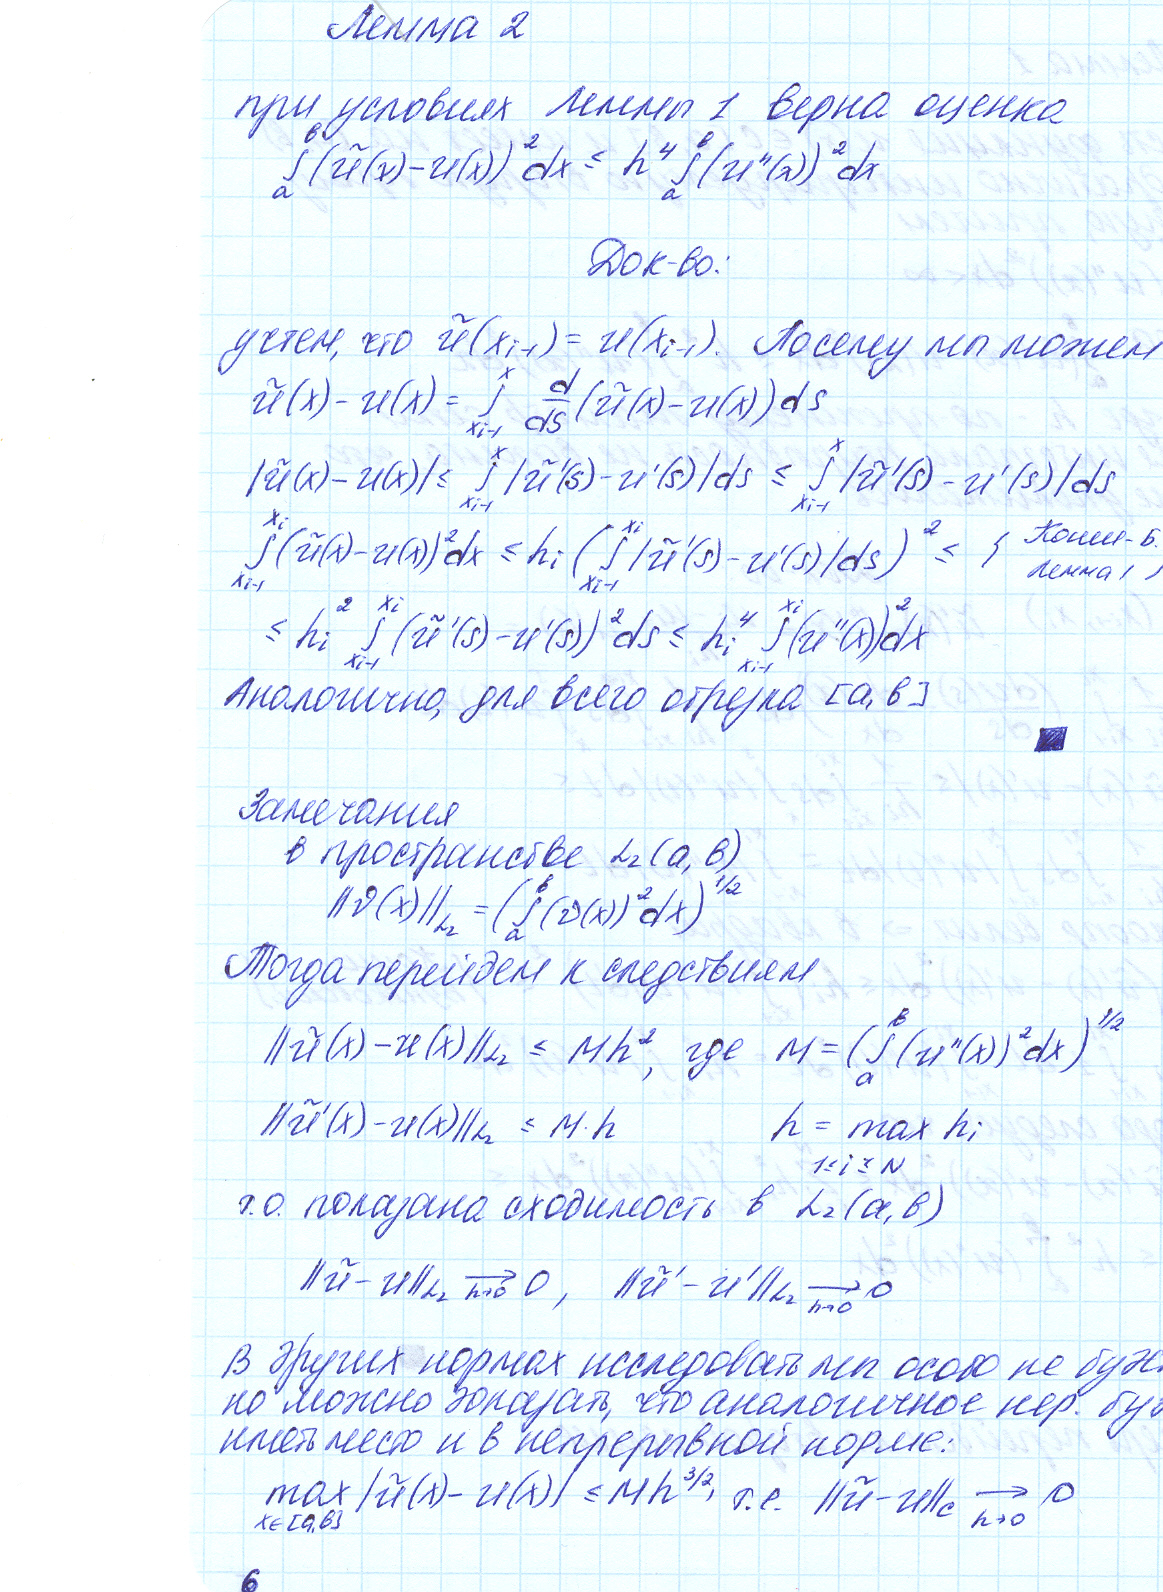 Лемма 2
при условиях Леммы 1 верна оценка
∫_a^b (ũ(x) - u(x))² dx ≤ h⁴ ∫_a^b (u''(x))² dx
Док-во:
учтем, что ũ(x_{i-1}) = u(x_{i-1}). Посему мы можем
ũ(x) - u(x) = ∫_{x_{i-1}}^x d/ds (ũ(x) - u(x)) ds
|ũ(x) - u(x)| ≤ ∫_{x_{i-1}}^x |ũ'(s) - u'(s)| ds ≤ ∫_{x_{i-1}}^x |ũ'(s) - u'(s)| ds
∫_{x_{i-1}}^{x_i} (ũ(x) - u(x))² dx ≤ h_i (∫_{x_{i-1}}^{x_i} |ũ'(s) - u'(s)| ds)² ≤ { Коши-Б.
Лемма 1 }
≤ h_i² ∫_{x_{i-1}}^{x_i} (ũ'(s) - u'(s))² ds ≤ h_i⁴ ∫_{x_{i-1}}^{x_i} (u''(x))² dx
Аналогично, для всего отрезка [a, b]
Замечания
в пространстве L₂(a, b)
||v(x)||_{L₂} = (∫_a^b (v(x))² dx)^{1/2}
Тогда перейдем к следствиям
||ũ(x) - u(x)||_{L₂} ≤ Mh², где M = (∫_a^b (u''(x))² dx)^{1/2}
||ũ'(x) - u(x)||_{L₂} ≤ M·h h = max_{1≤i≤N} h_i
т.о. показана сходимость в L₂(a, b)
||ũ - u||_{L₂} →_{h→0} 0, ||ũ' - u'||_{L₂} →_{h→0} 0
В других нормах исследовать мы особо не
но можно показать, что аналогичное нер.
иметь место и в непрерывной норме:
max_{x∈[a,b]} |ũ(x) - u(x)| ≤ Mh^{3/2}, т.е. ||ũ - u||_c →_{h→0} 0
6